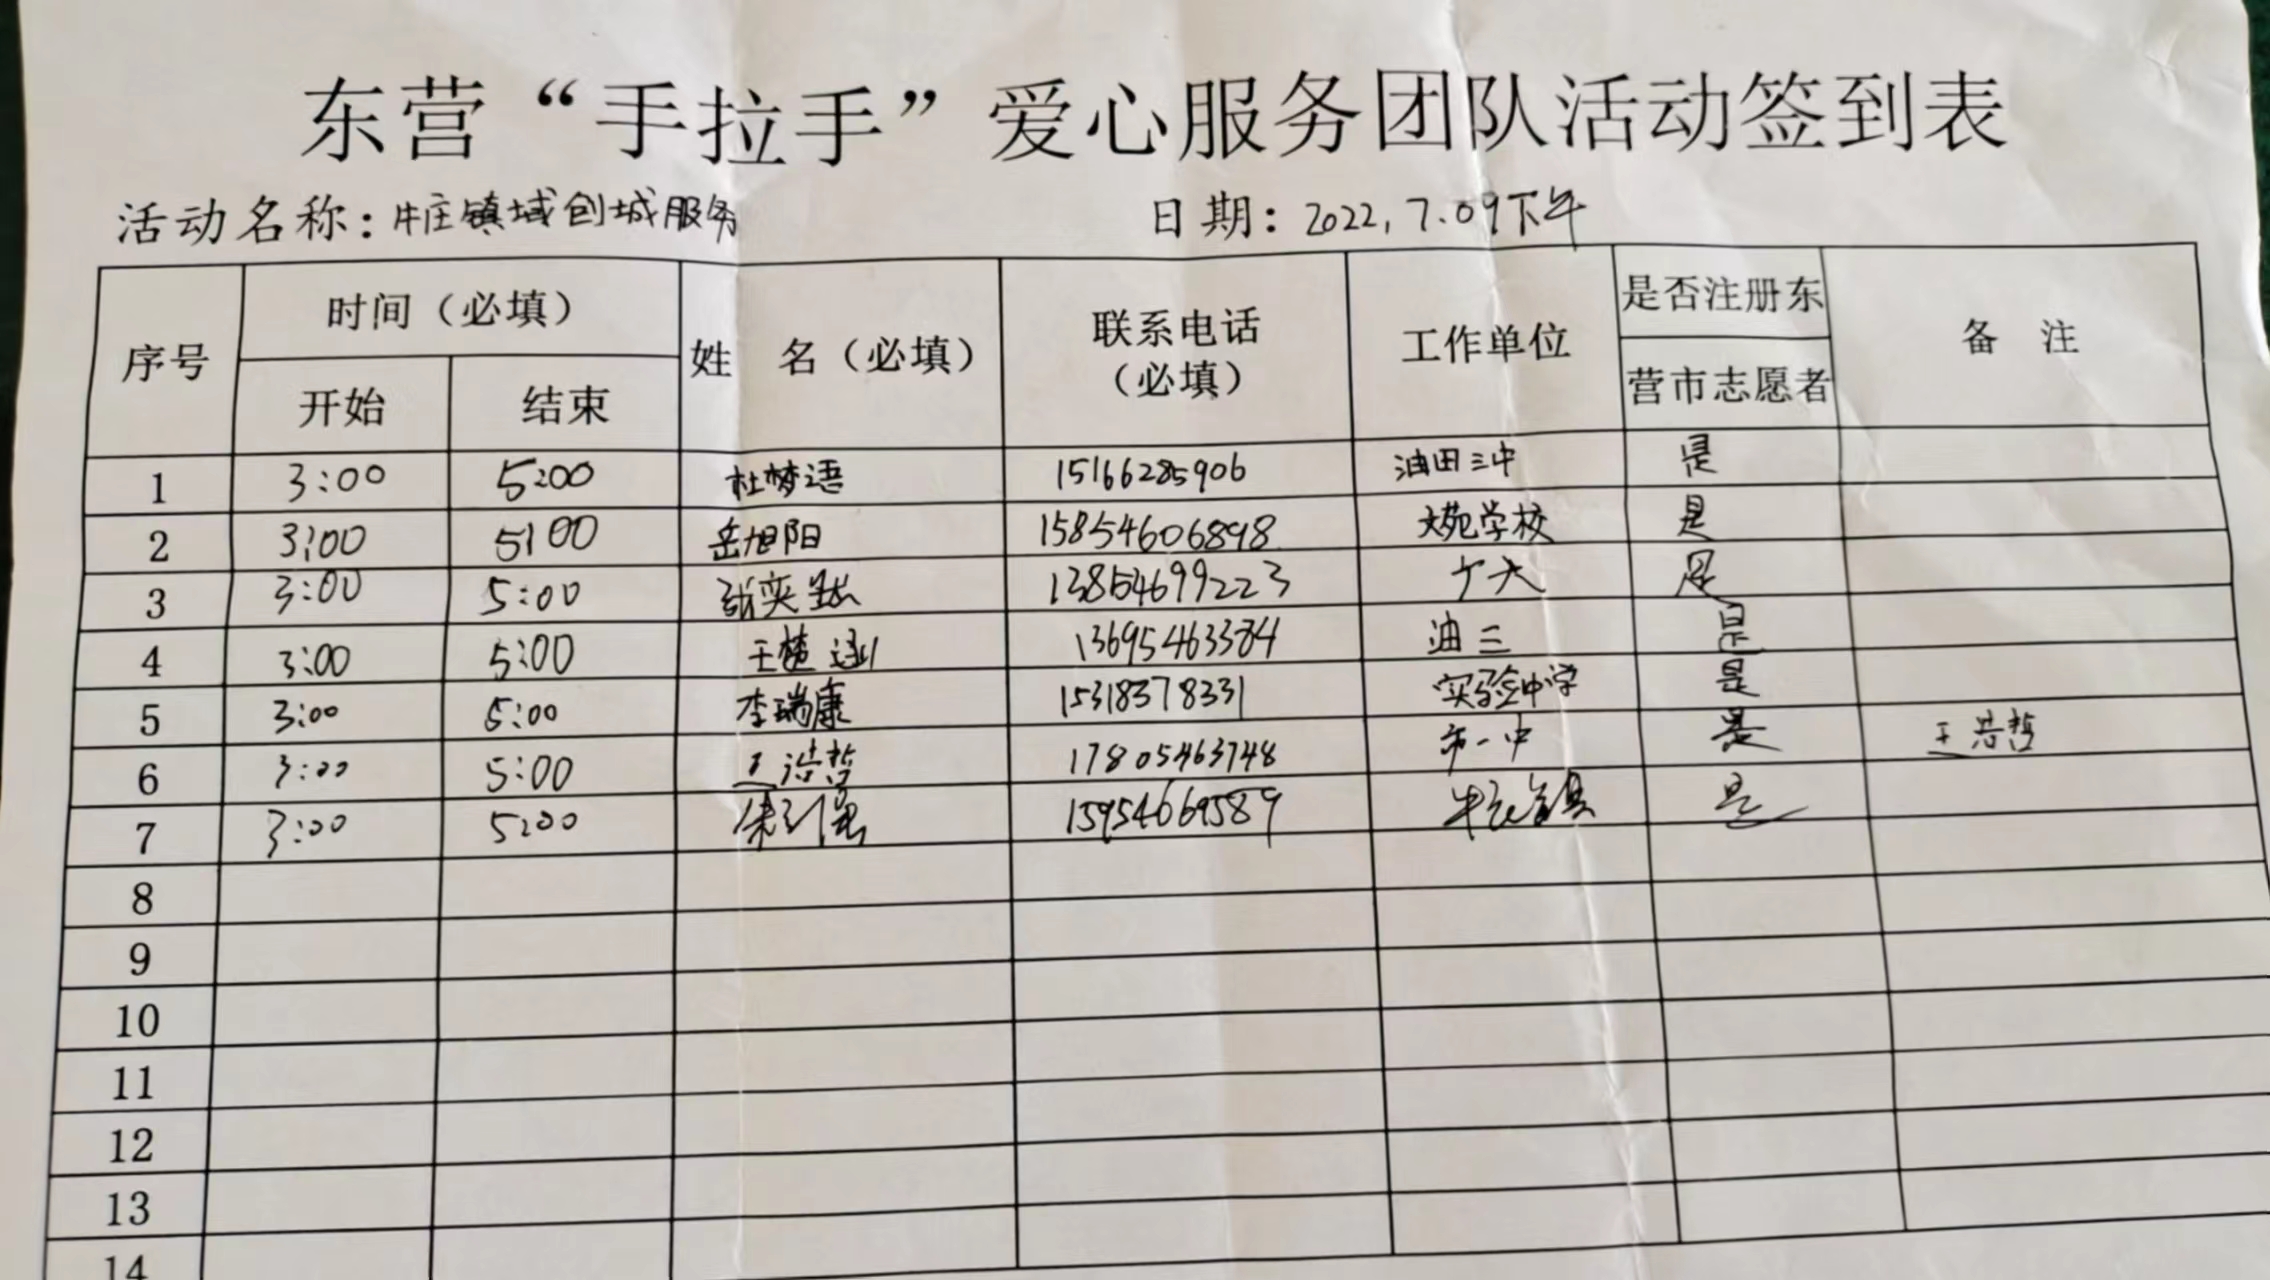 东营“手拉手”爱心服务团队活动签到表
活动名称：牛庄镇域创城服务 日期：2022.7.09下午
序号 时间（必填） 姓 名（必填） 联系电话（必填） 工作单位 是否注册东营市志愿者 备 注
开始 结束
1 3:00 5:00 杜梦语 15166285906 油田三中 是
2 3:00 5:00 岳旭阳 15854606898 文苑学校 是
3 3:00 5:00 张奕 13854699223 广大 是
4 3:00 5:00 王楚涵 13695463384 油三 是
5 3:00 5:00 李瑞康 15318378331 实验中学 是
6 3:00 5:00 王浩哲 17805463748 市一中 是 王浩哲
7 3:00 5:00 15954669589 牛庄镇 是
8
9
10
11
12
13
14